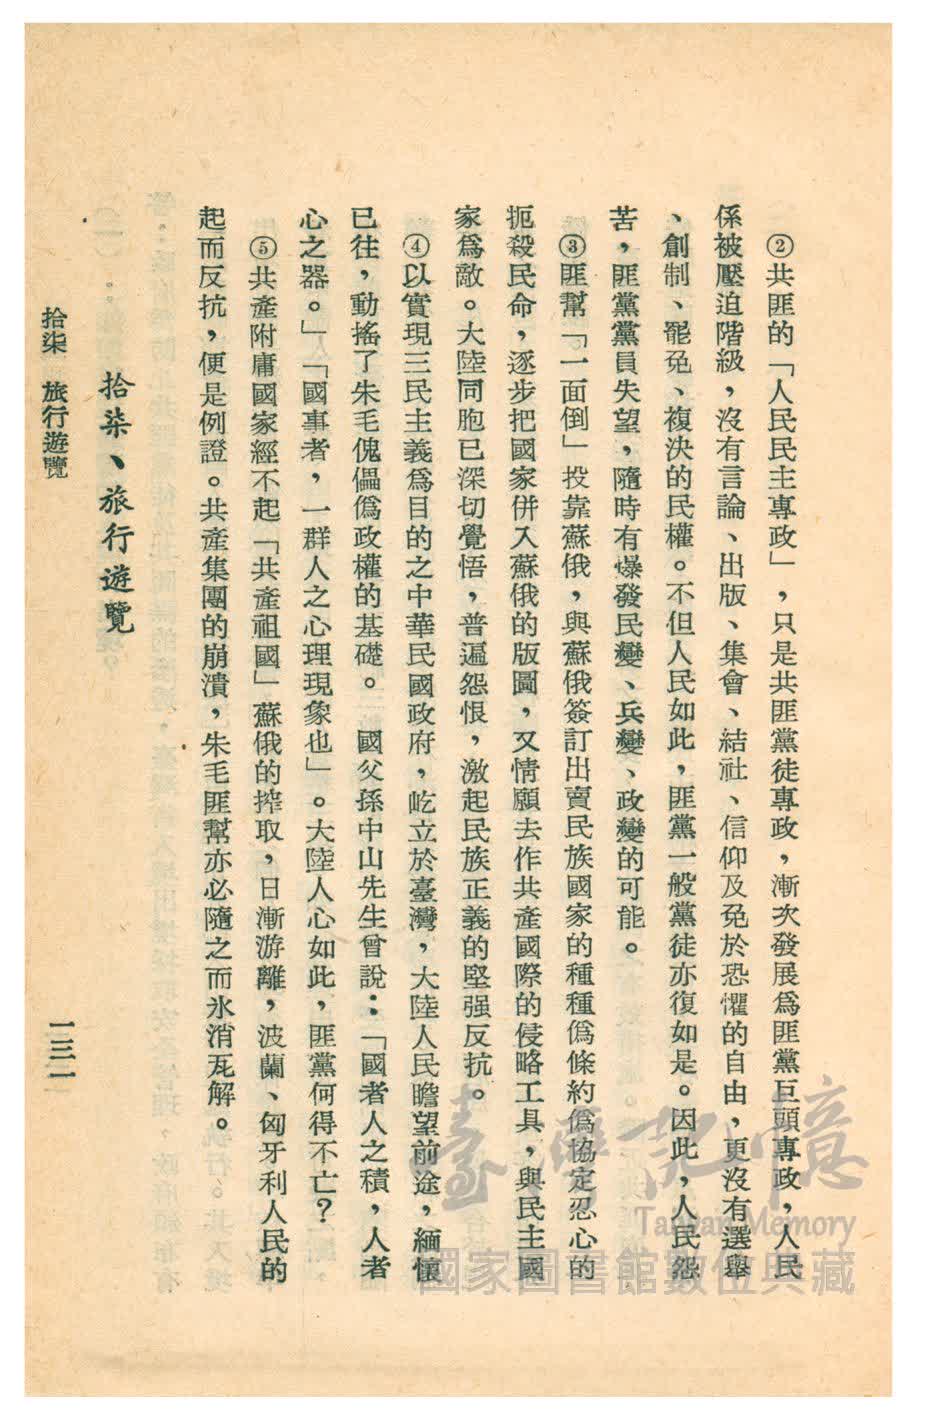 ②共匪的「人民民主專政」，只是共匪黨徒專政，漸次發展爲匪黨巨頭專政，人民
係被壓迫階級，沒有言論、出版、集會、結社、信仰及免於恐懼的自由，更沒有選舉
、創制、罷免、複決的民權。不但人民如此，匪黨一般黨徒亦復如是。因此，人民怨
苦，匪黨黨員失望，隨時有爆發民變、兵變、政變的可能。
③匪幫「一面倒」投靠蘇俄，與蘇俄簽訂出賣民族國家的種種僞條約僞協定忍心的
扼殺民命，逐步把國家併入蘇俄的版圖，又情願去作共產國際的侵略工具，與民主國
家爲敵。大陸同胞已深切覺悟，普遍怨恨，激起民族正義的堅强反抗。
④以實現三民主義爲目的之中華民國政府，屹立於臺灣，大陸人民瞻望前途，緬懷
已往，動搖了朱毛傀儡僞政權的基礎。　國父孫中山先生曾說：「國者人之積，人者
心之器。」「國事者，一群人之心理現象也」。大陸人心如此，匪黨何得不亡？
⑤共產附庸國家經不起「共產祖國」蘇俄的搾取，日漸游離，波蘭、匈牙利人民的
起而反抗，便是例證。共產集團的崩潰，朱毛匪幫亦必隨之而氷消瓦解。
拾柒、旅行遊覽
拾柒　旅行遊覽
一三一
臺灣記憶
Taiwan Memory
國家圖書館數位典藏